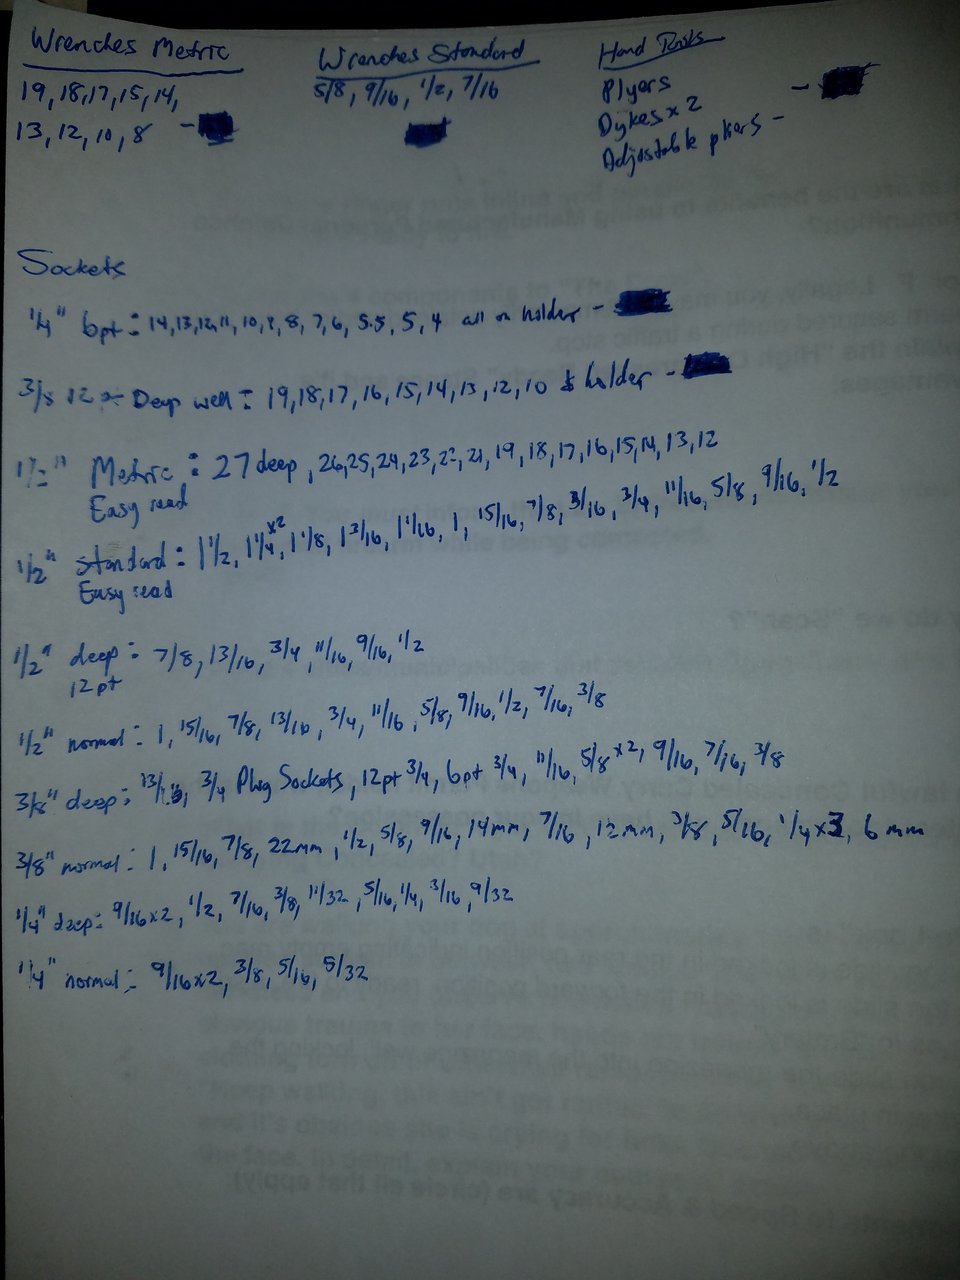 Wrenches Metric
19, 18, 17, 15, 14,
13, 12, 10, 8 -
Wrenches Standard
5/8, 9/16, 1/2, 7/16
Hand Tools
Plyers -
Dykes x 2
Adjustable pliers -
Sockets
1/4" 6pt: 14, 13, 12, 11, 10, 9, 8, 7, 6, 5.5, 5, 4 all on holder -
3/8 12 pt Deep well: 19, 18, 17, 16, 15, 14, 13, 12, 10 & holder -
1/2" Metric: 27 deep, 26, 25, 24, 23, 22, 21, 19, 18, 17, 16, 15, 14, 13, 12
Easy read
1/2" standard: 1 1/2, 1 1/4 x2, 1 1/8, 1 3/16, 1 1/16, 1, 15/16, 7/8, 3/16, 3/4, 11/16, 5/8, 9/16, 1/2
Easy read
1/2" deep: 7/8, 13/16, 3/4, 11/16, 9/16, 1/2
12pt
1/2" normal: 1, 15/16, 7/8, 13/16, 3/4, 11/16, 5/8, 9/16, 1/2, 7/16, 3/8
3/8" deep: 13/16, 3/4 Plug Sockets, 12pt 3/4, 6pt 3/4, 11/16, 5/8 x2, 9/16, 7/16, 3/8
3/8" normal: 1, 15/16, 7/8, 22mm, 1/2, 5/8, 9/16, 14mm, 7/16, 12mm, 3/8, 5/16, 1/4 x 3, 6 mm
1/4" deep: 9/16 x 2, 1/2, 7/16, 3/8, 11/32, 5/16, 1/4, 3/16, 9/32
1/4" normal: 9/16 x 2, 3/8, 5/16, 5/32